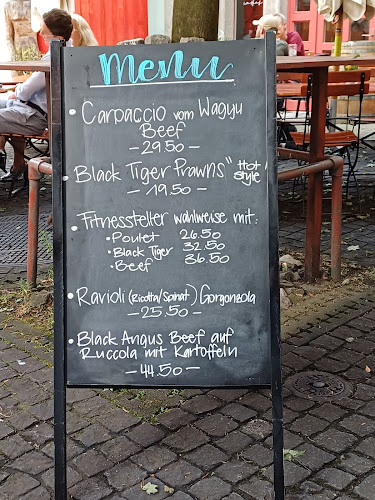 Menu
• Carpaccio vom Wagyu
Beef
– 29.50 –
• Black Tiger Prawns" Hot
style
– 19.50 –
• Fitnessteller wahlweise mit:
• Poulet 26.50
• Black Tiger 32.50
• Beef 36.50
• Ravioli (Ricotta/Spinat) Gorgonzola
– 25.50 –
• Black Angus Beef auf
Ruccola mit Kartoffeln
– 44.50 –